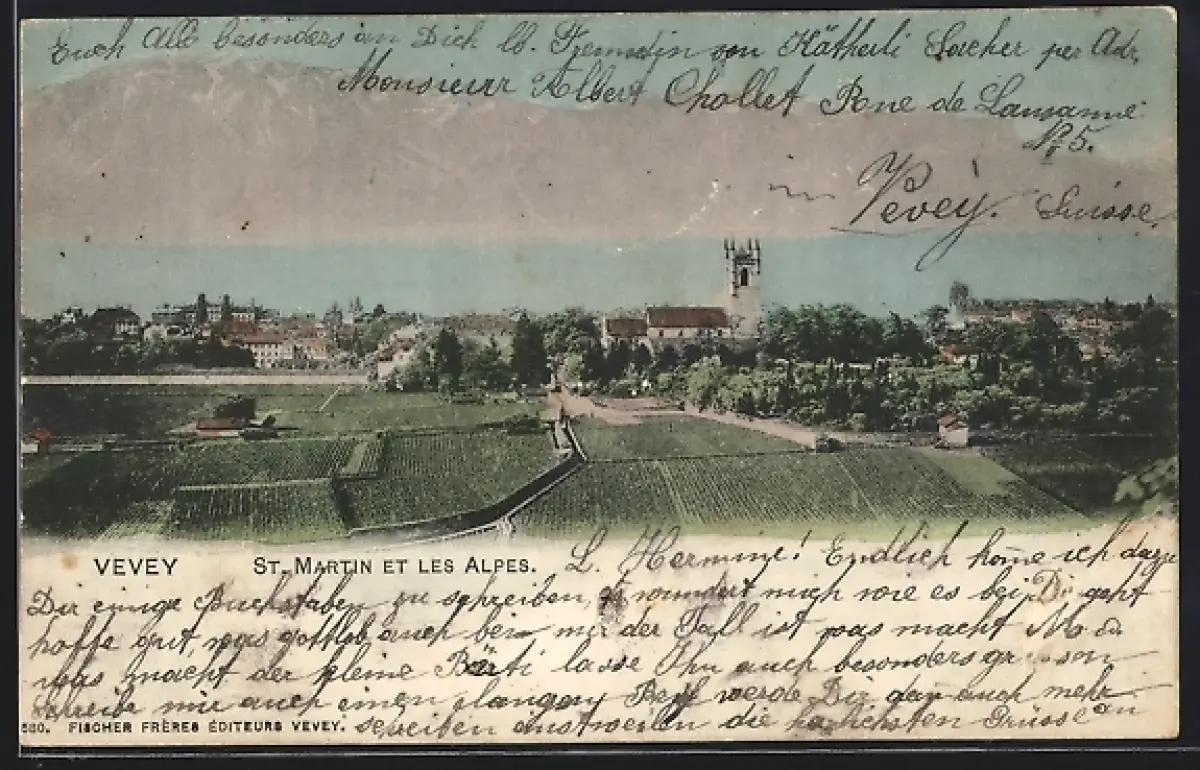 Euch Alle besonders an Dich lb. Fremdin von Kätherli Locher per Adr.
Monsieur Albert Chollet Rue de Lausanne
N° 5.
Vevey. Suisse.
VEVEY ST. MARTIN ET LES ALPES.
L. Hermine! Endlich kome ich dazu
Dir einige Buchstaben zu schreiben, es wundert mich wie es bei Dir geht
hoffe gut, was gottlob auch bei mir der Fall ist was macht
was macht der kleine lasse Ihn auch besonders
schreibe mir auch einen langen Brief werde Dir dan auch mehr
schreiben anstweilen die herzlichsten Grüsse an
FISCHER FRÈRES ÉDITEURS VEVEY.